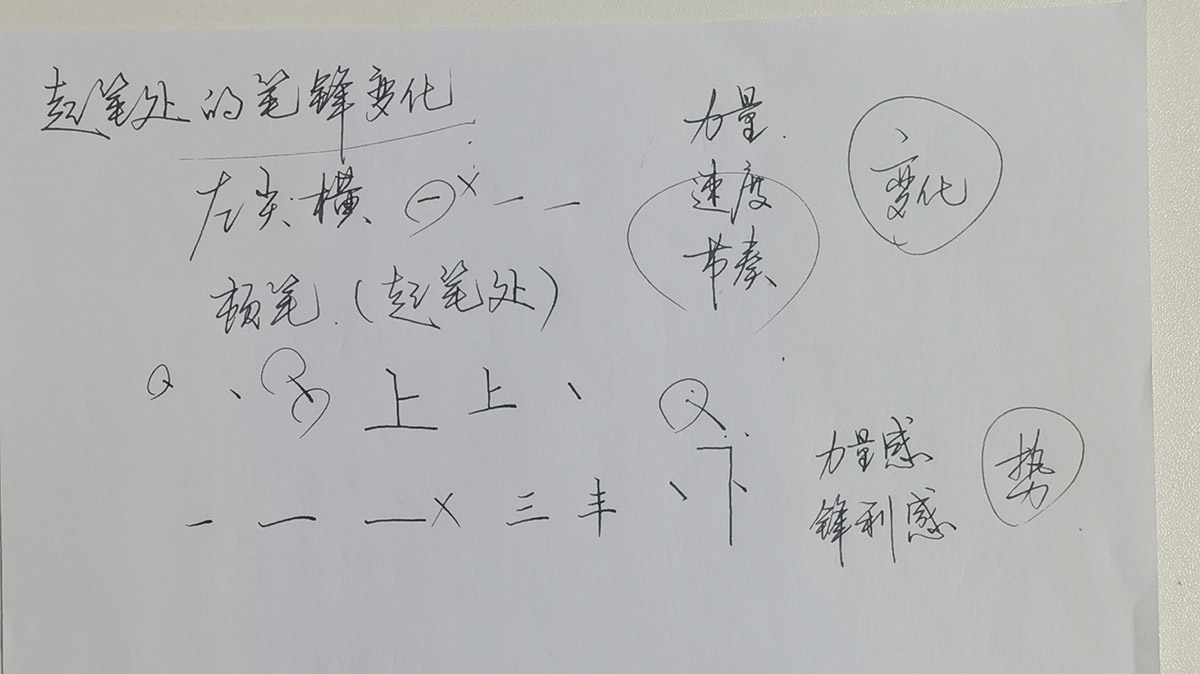 起笔处的笔锋变化
左尖横 一 × 一 一
顿笔.(起笔处)
上 上
一 一 一 × 三 丰
力量.
速度
节奏
变化
下
力量感
锋利感
势